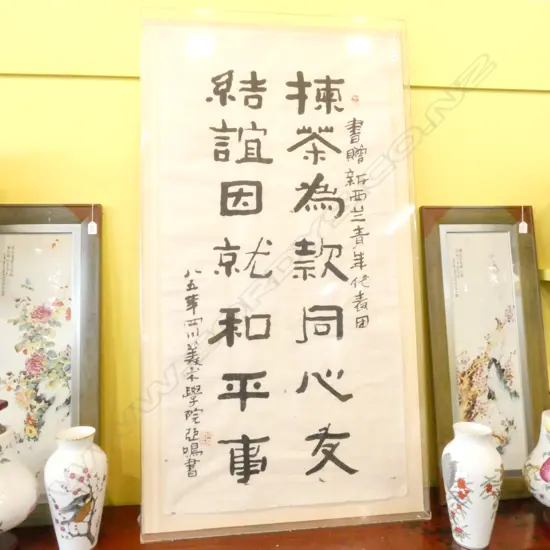 書贈新西兰青年代表团
揀茶為款同心友
結誼因就和平事
八五年四川美术學院亞鳴書